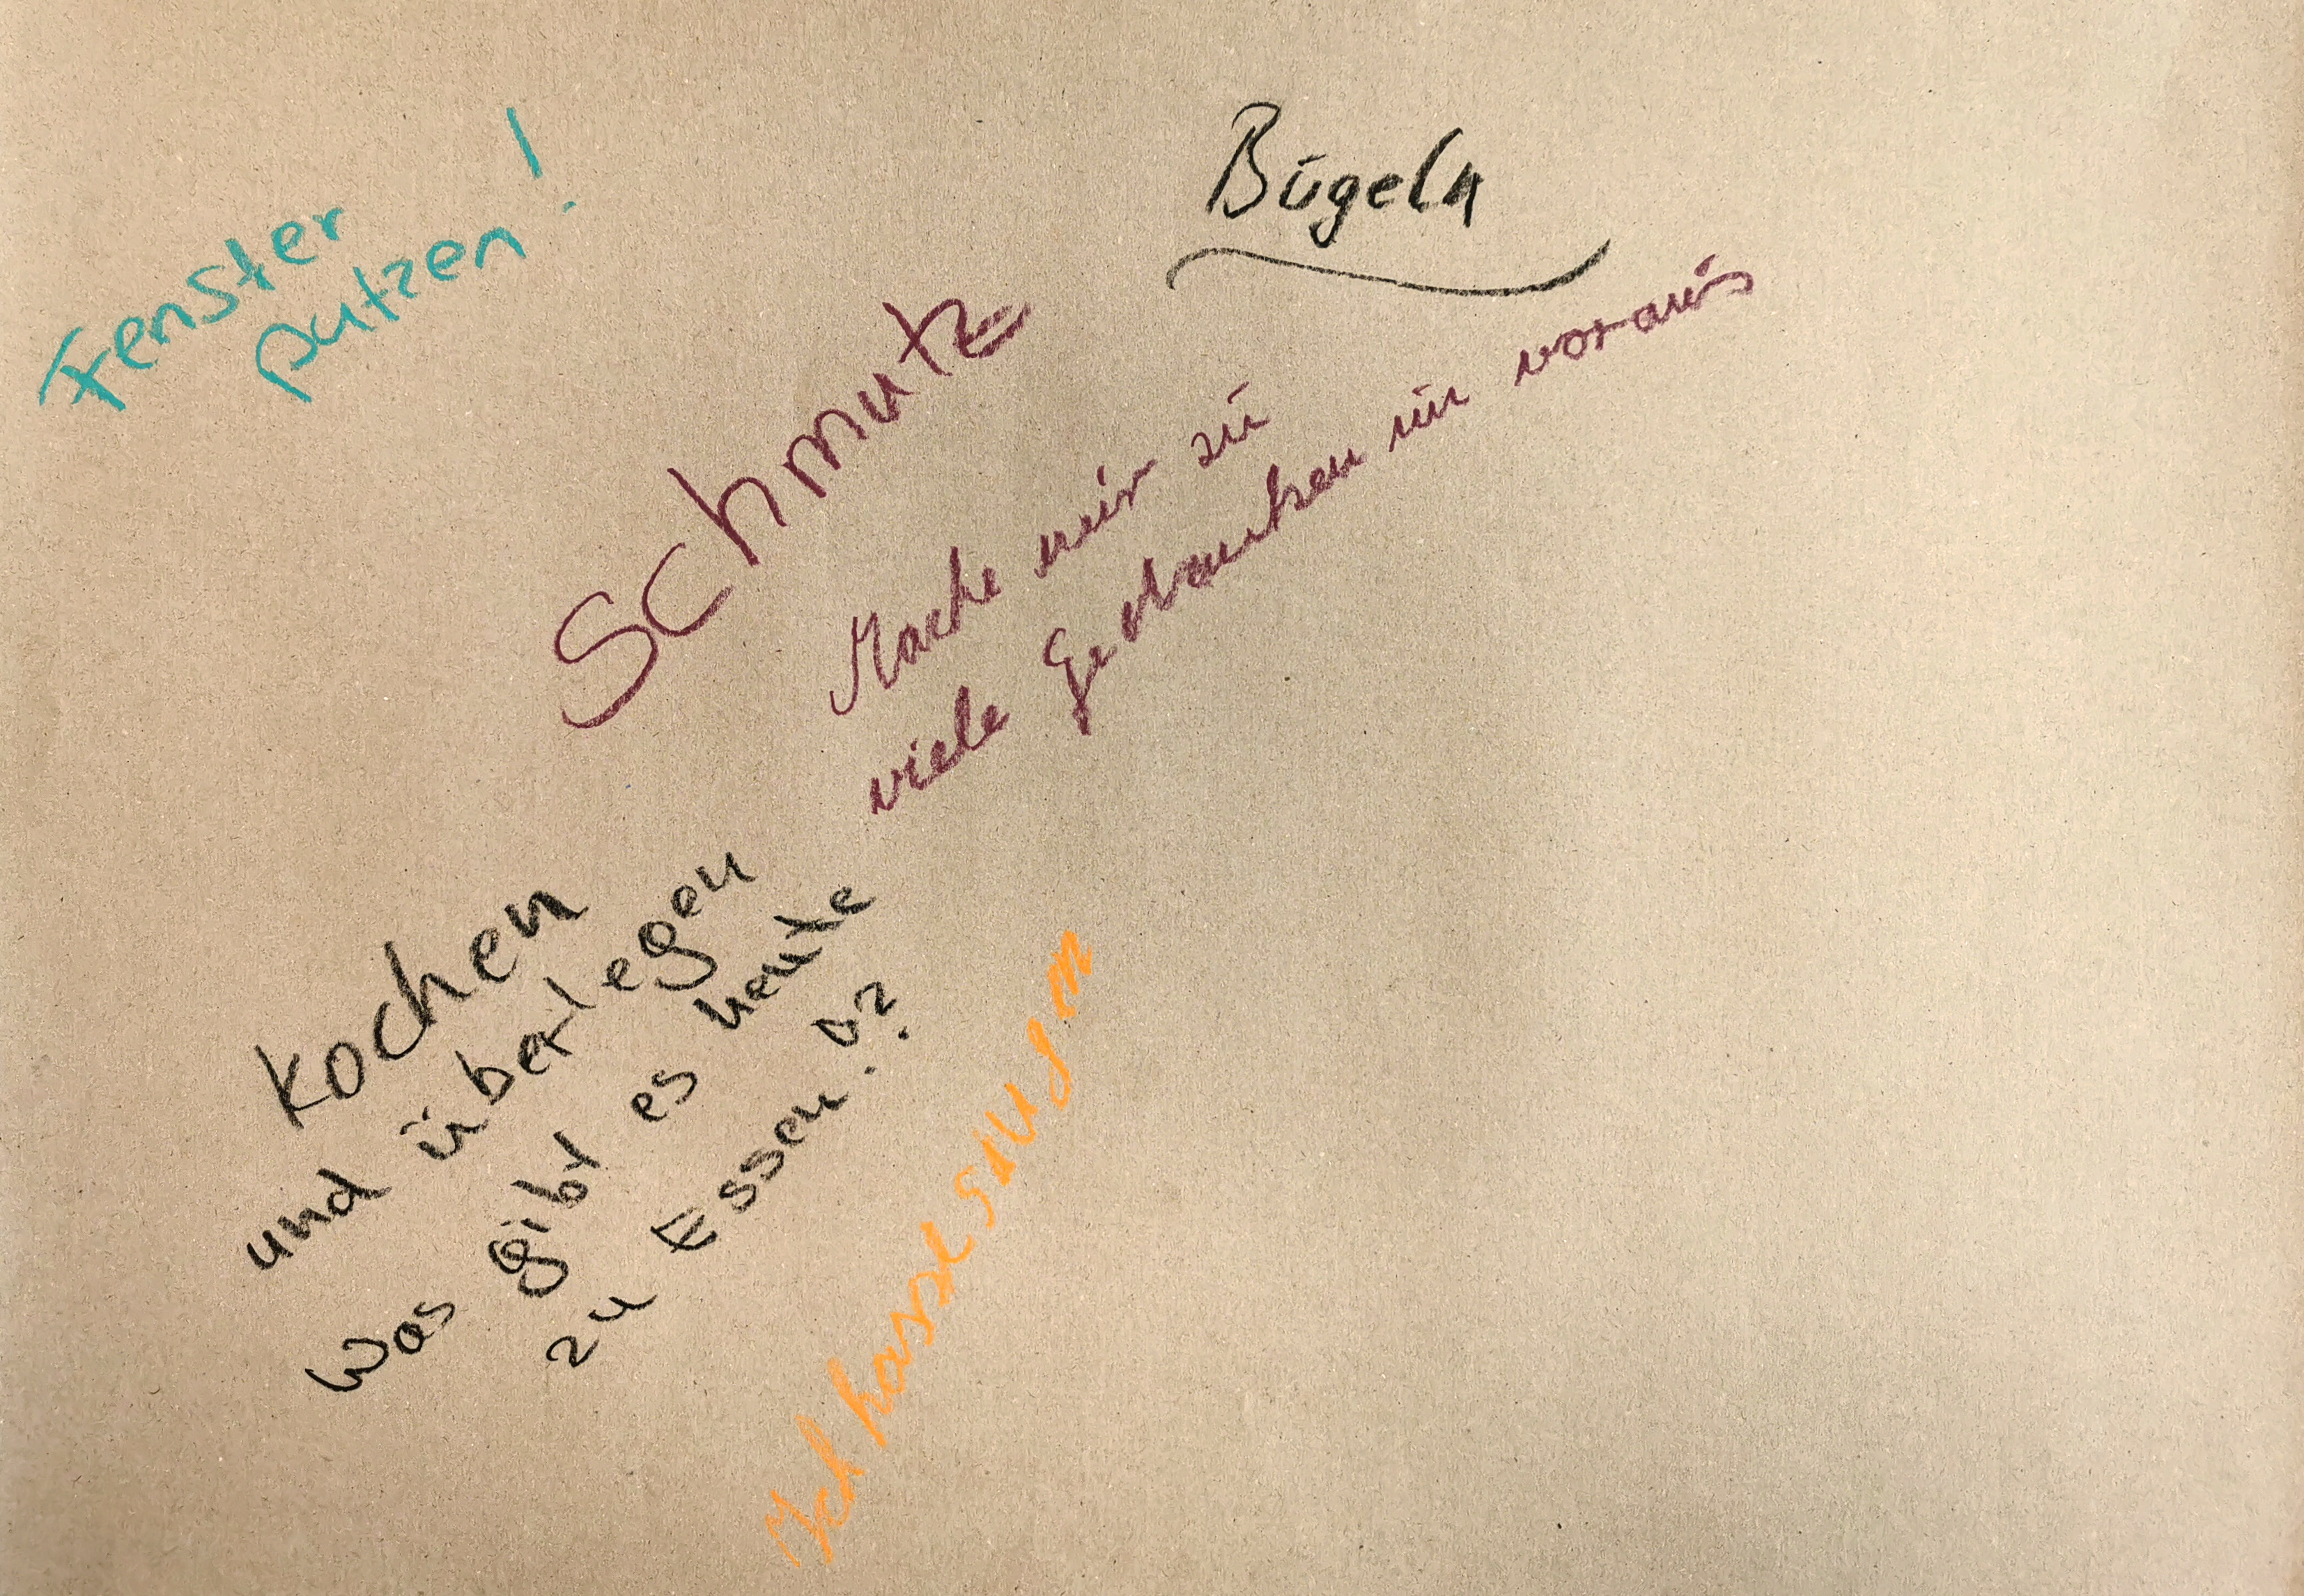 Fenster
putzen!
Bügeln
Schmutz
Mache mir zu
viele Gedanken im voraus
Kochen
und überlegen
Was gibt es heute
zu Essen??
Ich hasse